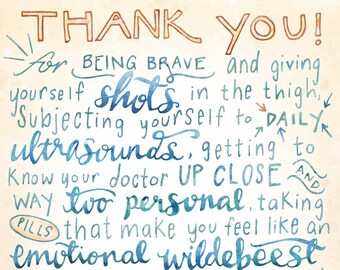 THANK YOU!
for BEING BRAVE and giving
yourself shots in the thigh,
Subjecting yourself to DAILY
ultrasounds, getting to
Know your doctor UP CLOSE AND
WAY too personal, taking
PILLS that make you feel like an
emotional wildebeest,